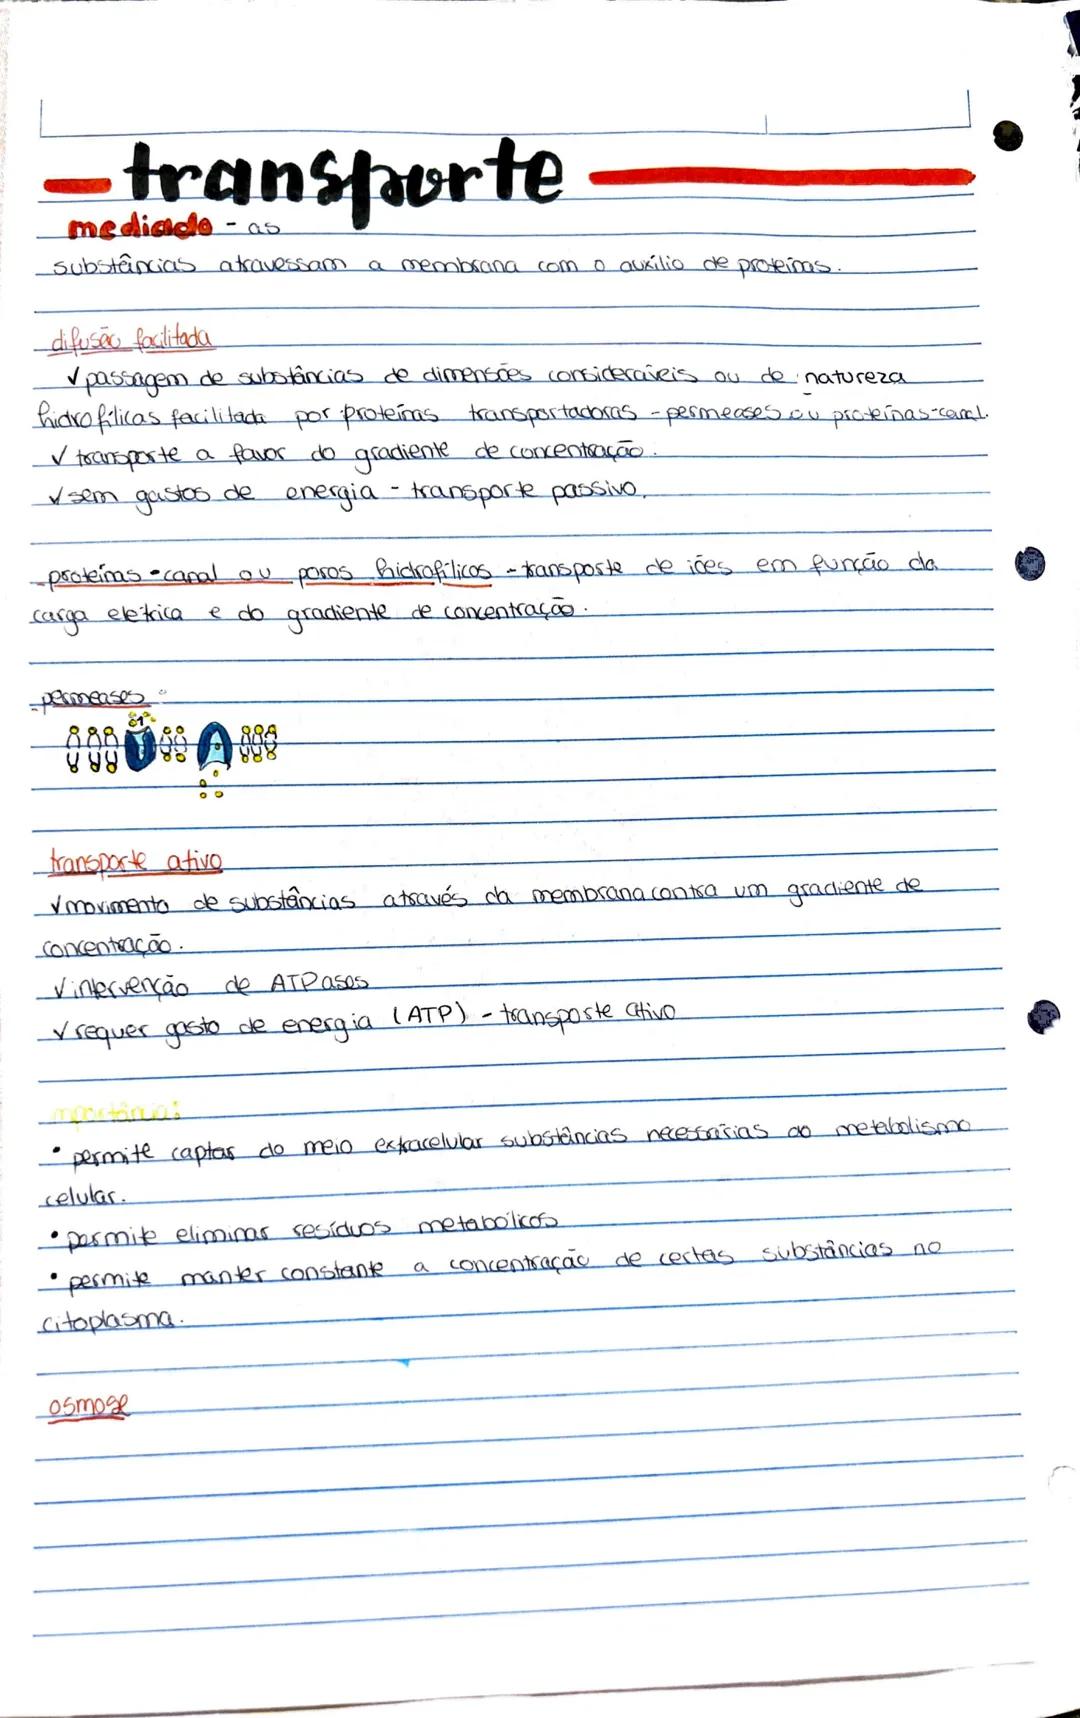 transporte
mediado - as
substâncias atravessam a membrana com o auxílio de proteínas.
difusão facilitada
✓ passagem de substâncias de dimensões consideráveis ou de natureza
hidrofílicas facilitada por proteínas transportadoras - permeases ou proteínas-canal.
✓ transporte a favor do gradiente de concentração.
✓ sem gastos de energia - transporte passivo.
proteínas-canal ou poros hidrofílicos - transporte de iões em função da
carga elétrica e do gradiente de concentração.
permeases:
transporte ativo
✓ movimento de substâncias através da membrana contra um gradiente de
concentração.
✓ intervenção de ATPases
✓ requer gasto de energia (ATP) - transporte ativo
importância:
• permite captar do meio extracelular substâncias necessárias ao metabolismo
celular.
• permite eliminar resíduos metabólicos
• permite manter constante a concentração de certas substâncias no
citoplasma.
osmose